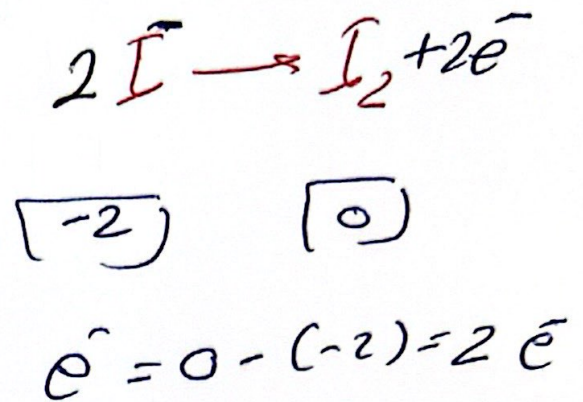 2 I⁻ → I₂ + 2e⁻
-2 0
e⁻ = 0 - (-2) = 2 e⁻